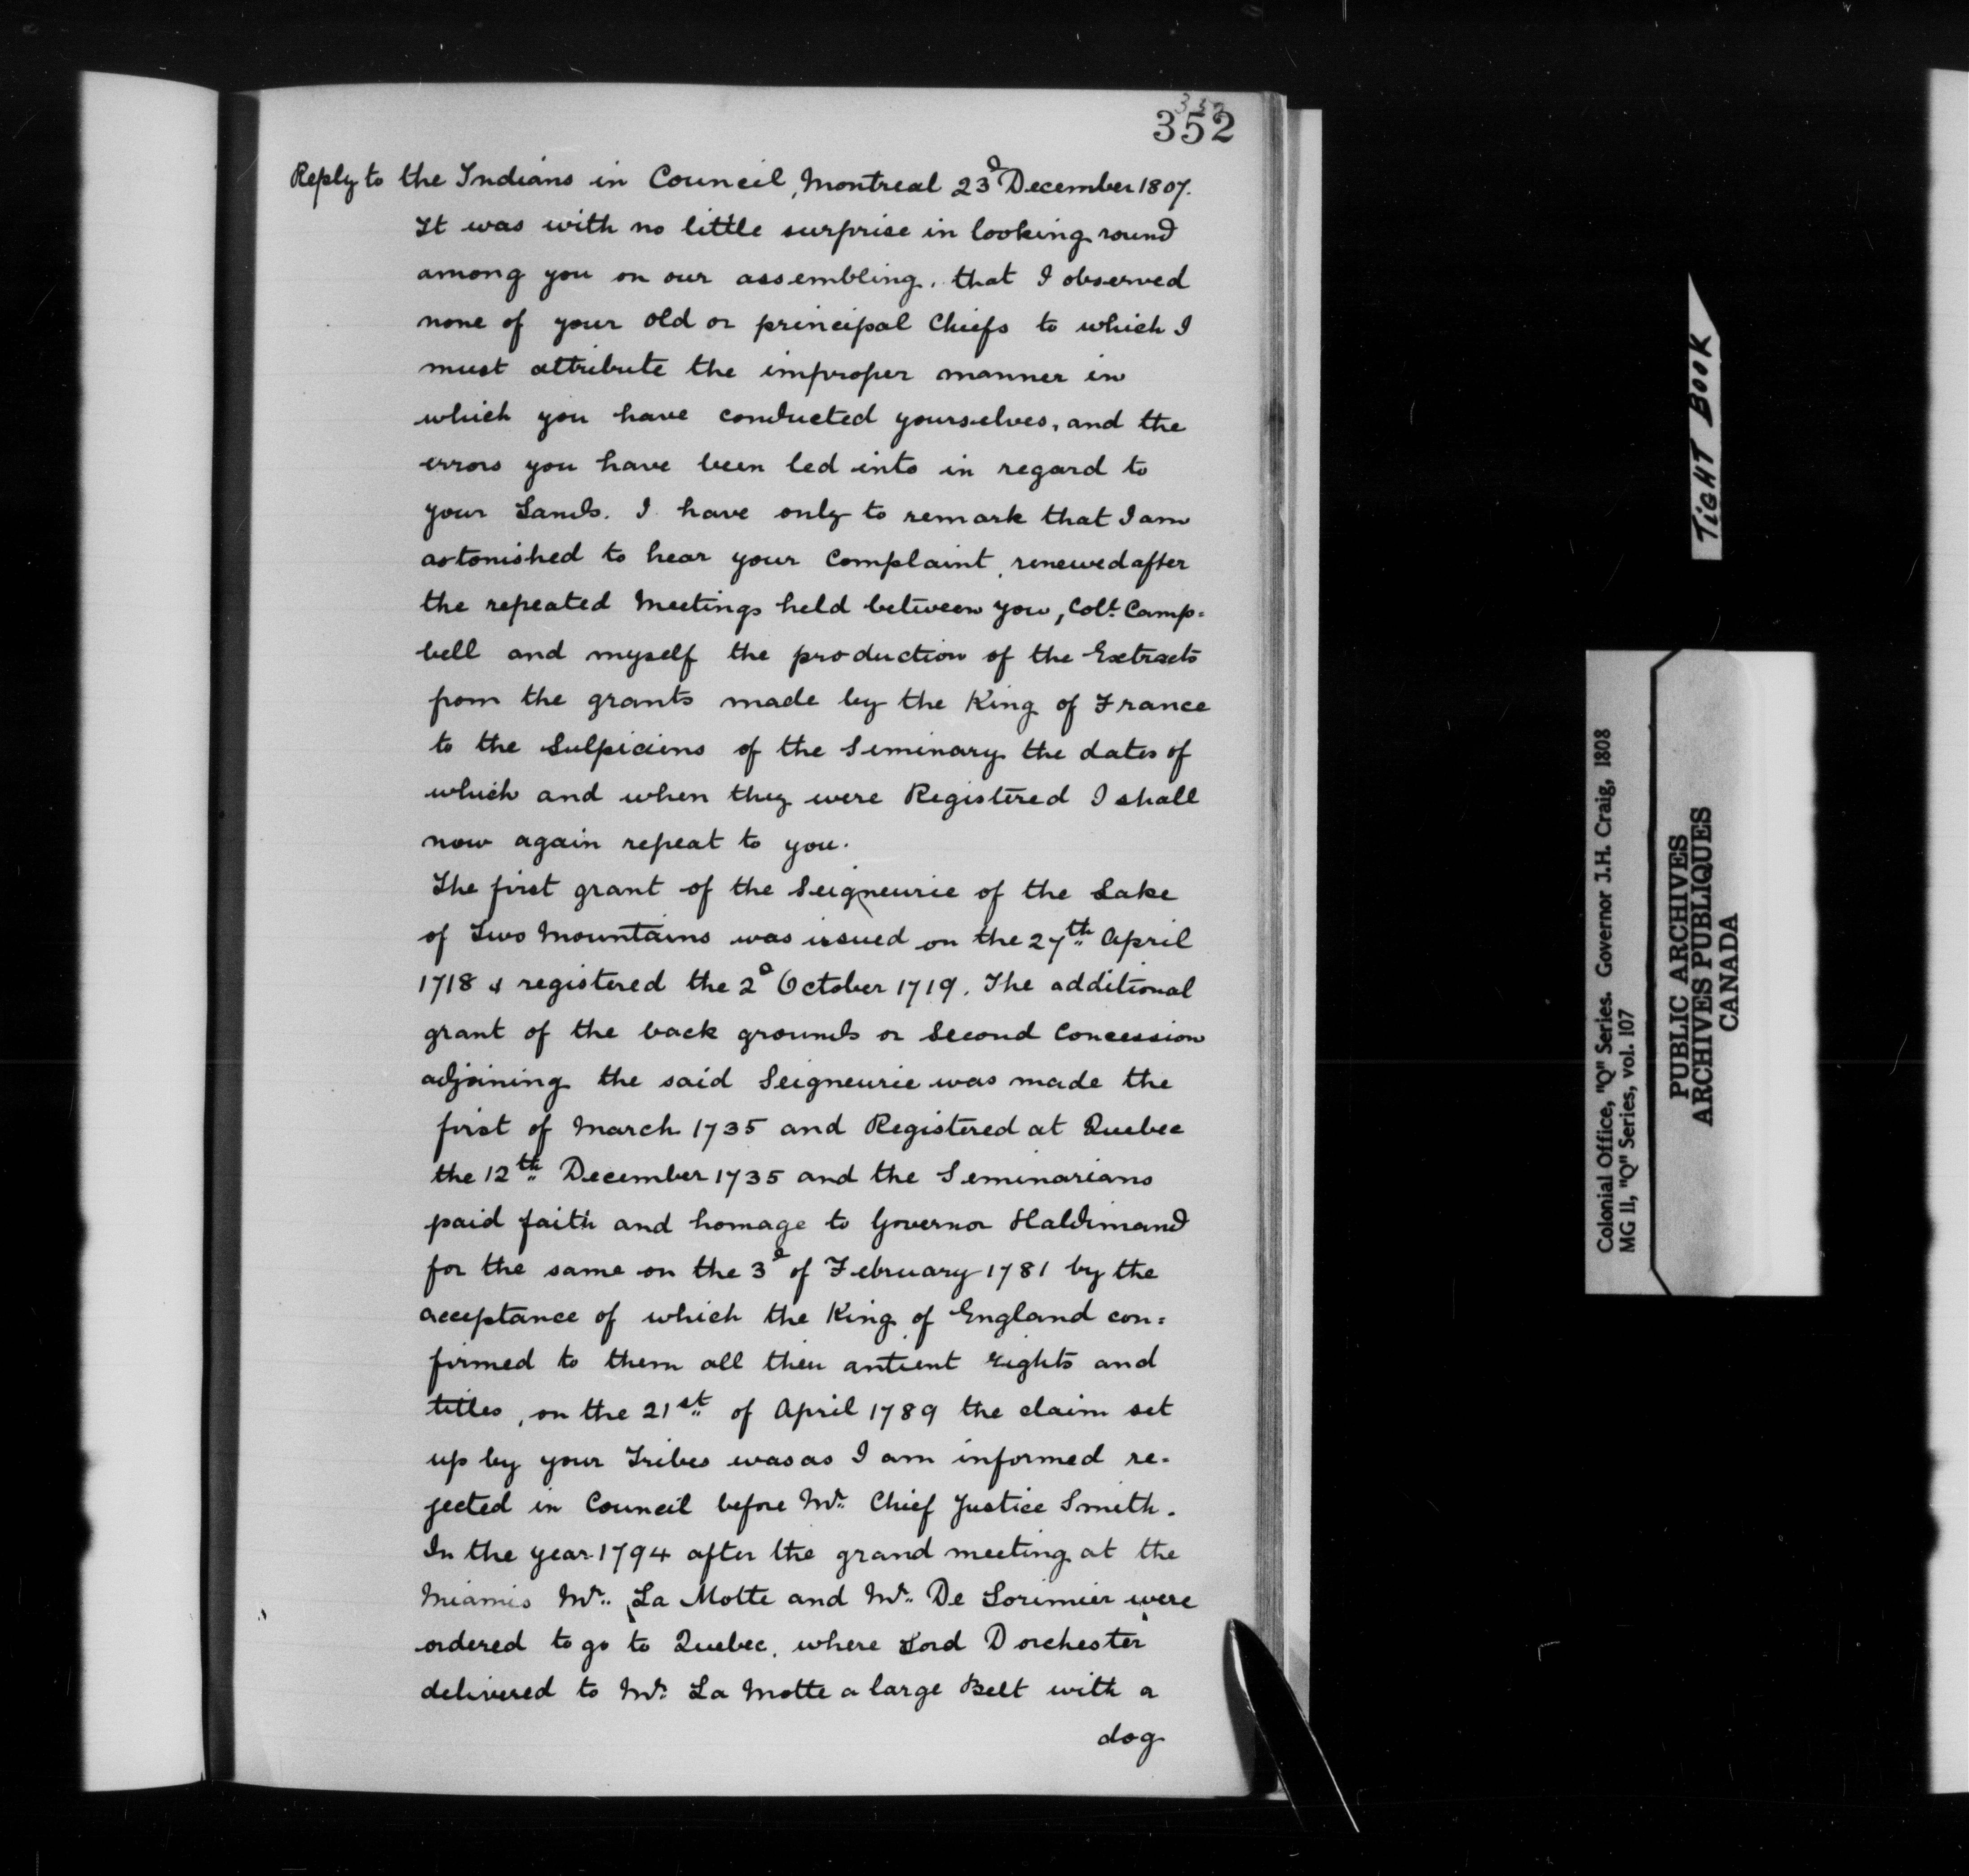 332
352
Reply to the Indians in Council, Montreal 23d December 1807.
It was with no little surprise in looking round
among you on our assembling, that I observed
none of your old or principal Chiefs to which I
must attribute the improper manner in
which you have conducted yourselves, and the
errors you have been led into in regard to
your Lands. I have only to remark that I am
astonished to hear your Complaint, renewed after
the repeated Meetings held between you, Colt. Camp=
bell and myself the production of the Extracts
from the grants made by the King of France
to the Sulpiciens of the Seminary the dates of
which and when they were Registered I shall
now again repeat to you.
The first grant of the Seigneurie of the Lake
of Two Mountains was issued on the 27th April
1718 & registered the 2d October 1719. The additional
grant of the back grounds or Second Concession
adjoining the said Seigneurie was made the
first of March 1735 and Registered at Quebec
the 12th December 1735 and the Seminarians
paid faith and homage to Governor Haldimand
for the same on the 3d of February 1781 by the
acceptance of which the King of England con=
firmed to them all their antient rights and
titles, on the 21st of April 1789 the claim set
up by your Tribes was as I am informed re-
jected in Council before Mr. Chief Justice Smith.
In the year 1794 after the grand meeting at the
Miamis Mr. La Motte and Mr. De Lorimier were
ordered to go to Quebec, where Lord Dorchester
delivered to Mr. La Motte a large Belt with a
dog
TIGHT BOOK
Colonial Office, "Q" Series. Governor J.H. Craig, 1808
MG 11, "Q" Series, vol. 107
PUBLIC ARCHIVES
ARCHIVES PUBLIQUES
CANADA